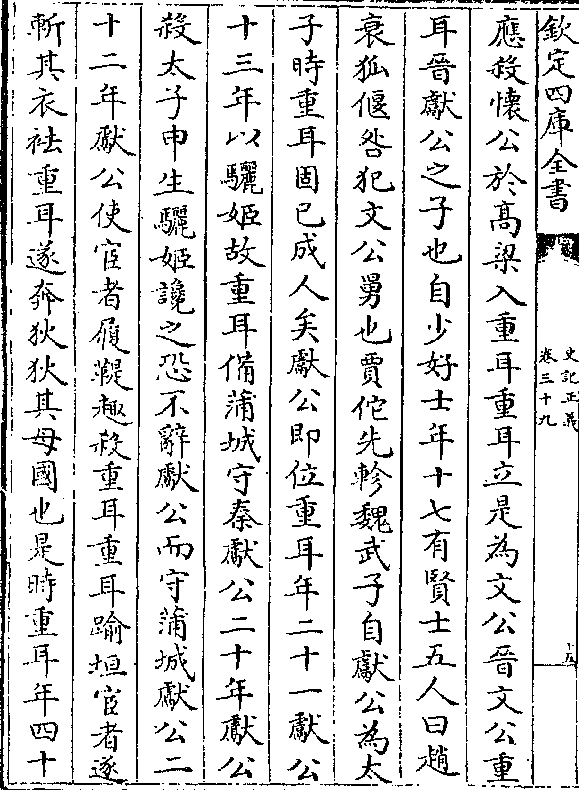 欽定四庫全書
史記正義
卷三十九
十五
應殺懷公於高梁入重耳重耳立是為文公晉文公重
耳晉獻公之子也自少好士年十七有賢士五人曰趙
衰狐偃咎犯文公舅也賈佗先軫魏武子自獻公為太
子時重耳固已成人矣獻公即位重耳年二十一獻公
十三年以驪姬故重耳備蒲城守秦獻公二十年獻公
殺太子申生驪姬讒之恐不辭獻公而守蒲城獻公二
十二年獻公使宦者履鞮趣殺重耳重耳踰垣宦者遂
斬其衣袪重耳遂奔狄狄其母國也是時重耳年四十